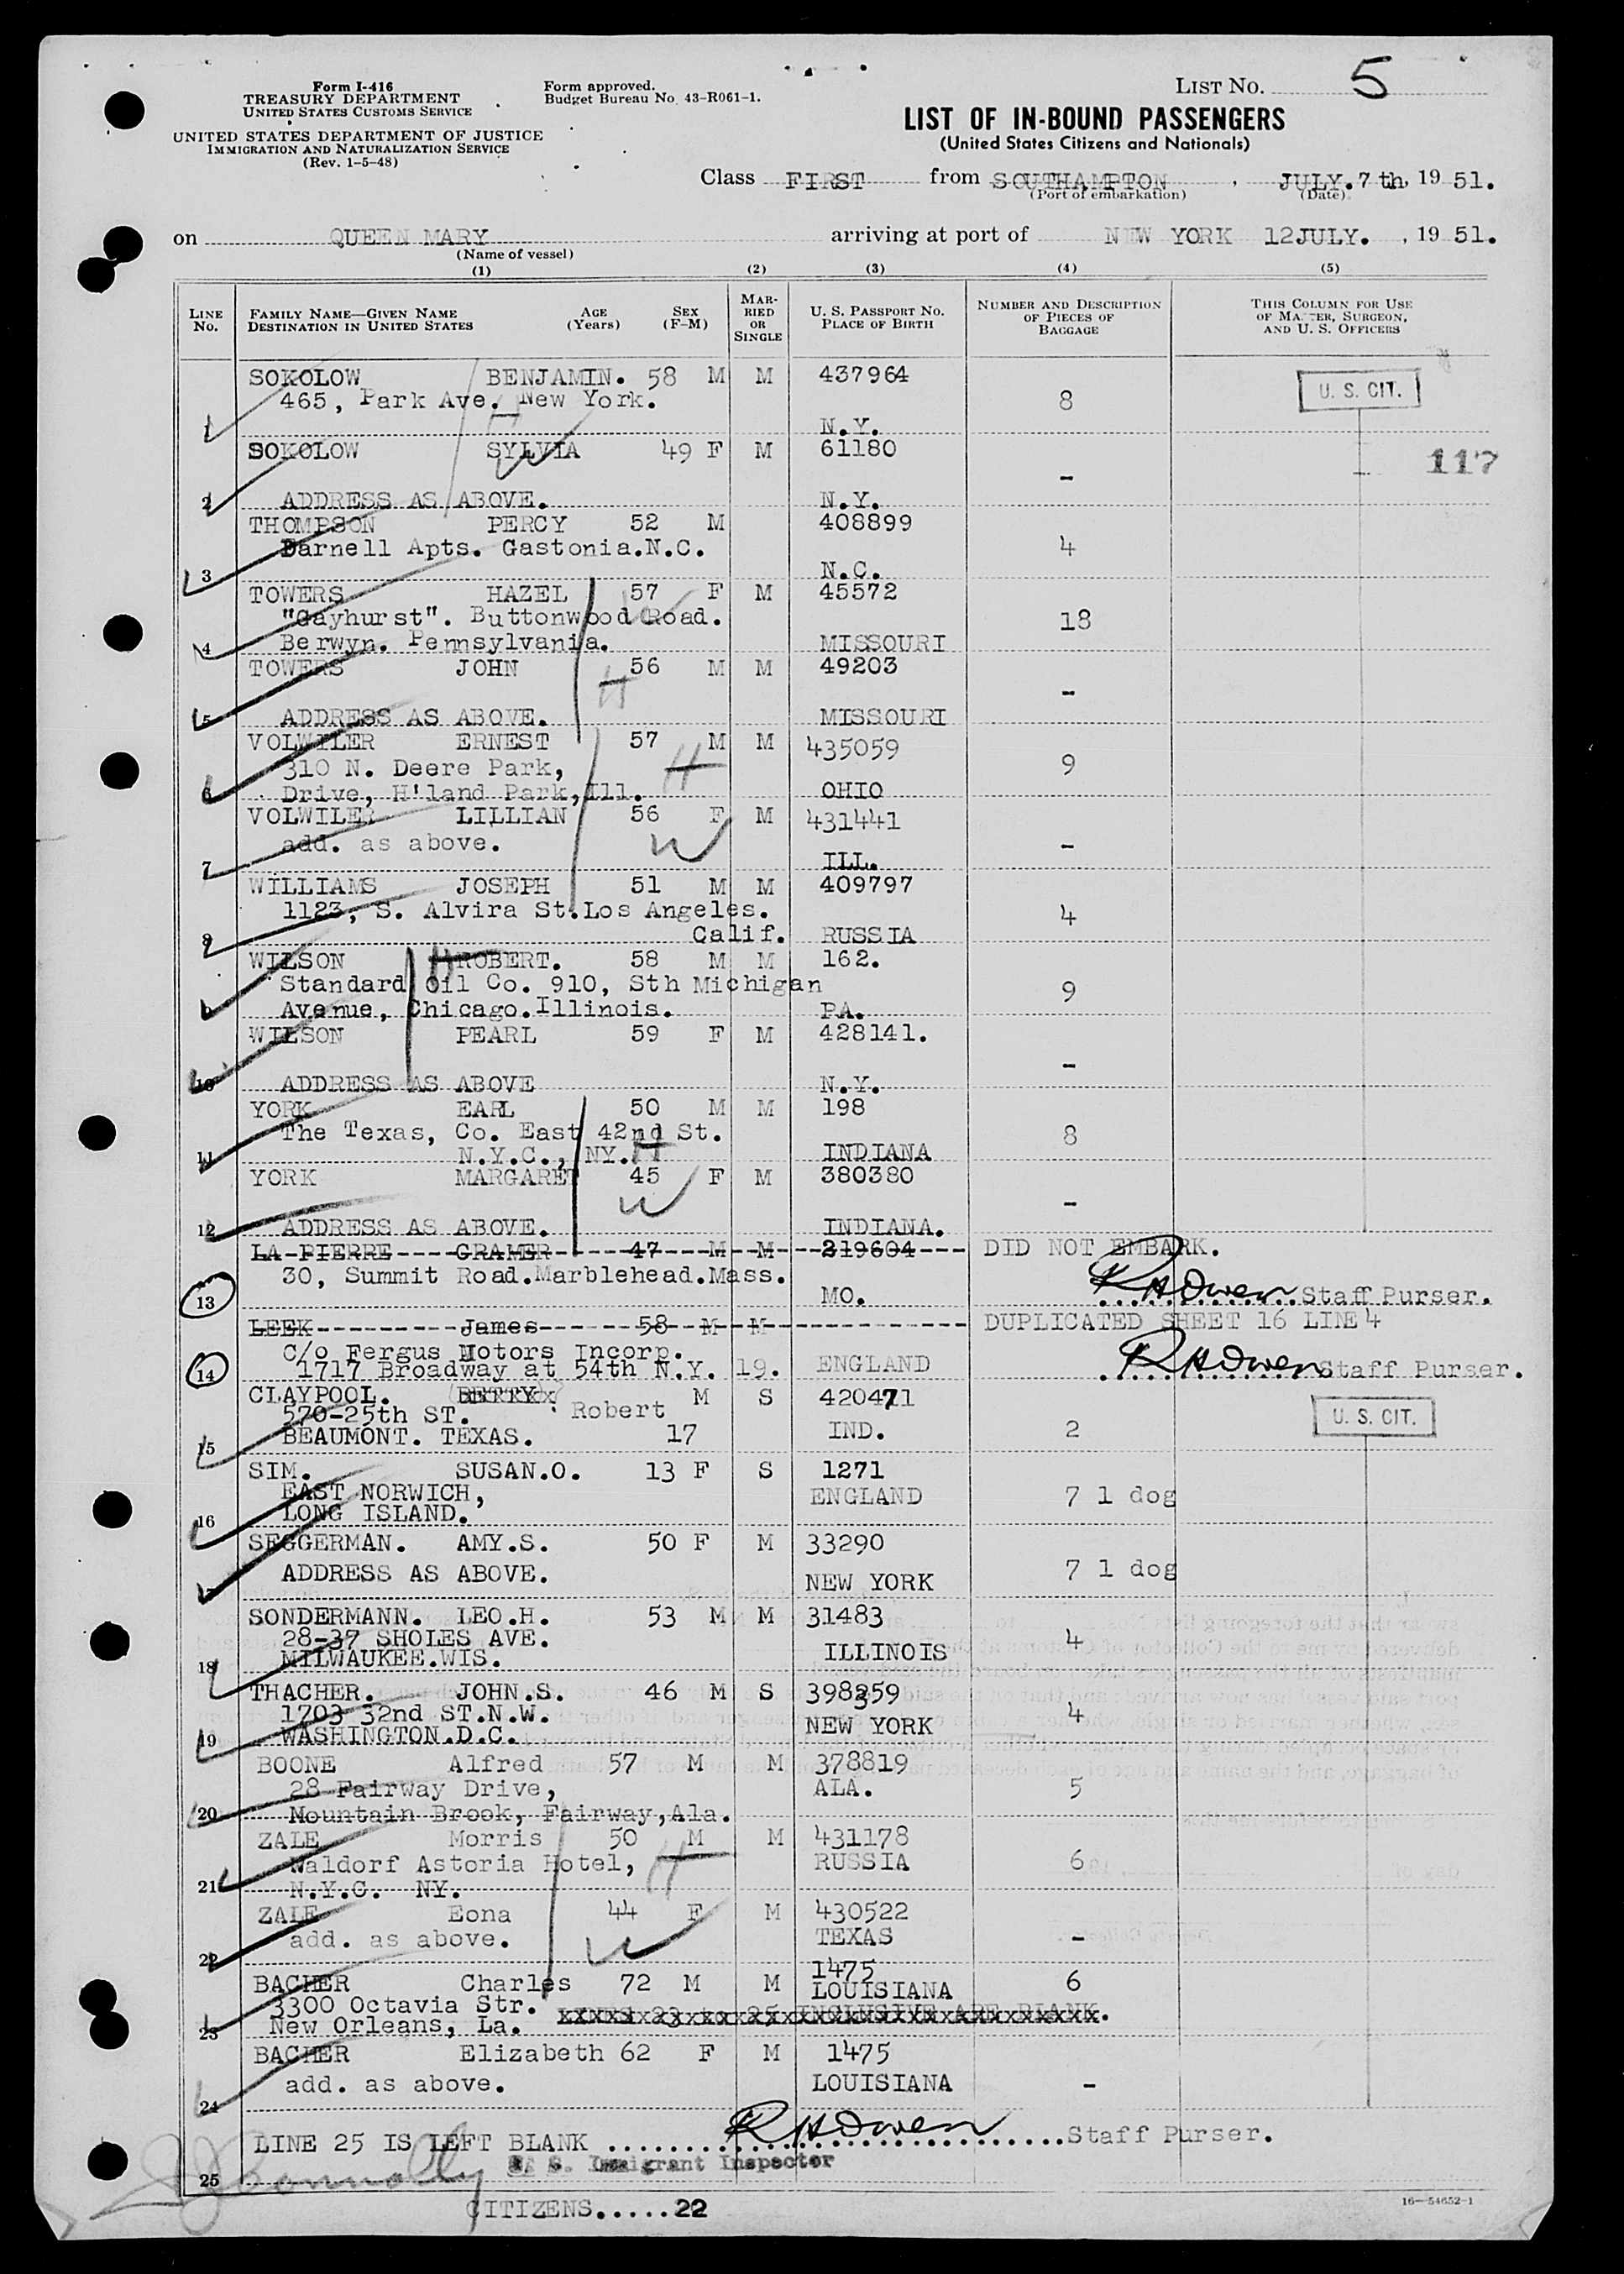 Form I-416
TREASURY DEPARTMENT
UNITED STATES CUSTOMS SERVICE
UNITED STATES DEPARTMENT OF JUSTICE
IMMIGRATION AND NATURALIZATION SERVICE
(Rev. 1-5-48)
Form approved.
Budget Bureau No. 43-R061-1.
LIST No. 5
LIST OF IN-BOUND PASSENGERS
(United States Citizens and Nationals)
Class FIRST from SOUTHAMPTON, JULY.7th, 1951.
(Port of embarkation) (Date)
on QUEEN MARY arriving at port of NEW YORK 12JULY., 1951.
(Name of vessel)
(1) (2) (3) (4) (5)
LINE No. FAMILY NAME—GIVEN NAME DESTINATION IN UNITED STATES AGE (Years) SEX (F-M) MARRIED OR SINGLE U. S. PASSPORT No. PLACE OF BIRTH NUMBER AND DESCRIPTION OF PIECES OF BAGGAGE THIS COLUMN FOR USE OF MASTER, SURGEON, AND U. S. OFFICERS
SOKOLOW BENJAMIN. 58 M M 437964 U. S. CIT.
465, Park Ave. New York. 8
1 H N.Y.
SOKOLOW SYLVIA 49 F M 61180 117
W -
2 ADDRESS AS ABOVE. N.Y.
THOMPSON PERCY 52 M 408899
Darnell Apts. Gastonia.N.C. 4
3 N.C.
TOWERS HAZEL 57 F M 45572
"Gayhurst". Buttonwood Road. W 18
4 Berwyn. Pennsylvania. MISSOURI
TOWERS JOHN 56 M M 49203
H -
5 ADDRESS AS ABOVE. MISSOURI
VOLWILER ERNEST 57 M M 435059
310 N. Deere Park, H 9
6 Drive, H'land Park,Ill. OHIO
VOLWILER LILLIAN 56 F M 431441
add. as above. W -
7 ILL.
WILLIAMS JOSEPH 51 M M 409797
1123, S. Alvira St.Los Angeles. 4
8 Calif. RUSSIA
WILSON H ROBERT. 58 M M 162.
Standard Oil Co. 910, Sth Michigan 9
9 Avenue, Chicago.Illinois. PA.
WILSON PEARL 59 F M 428141.
-
10 ADDRESS AS ABOVE N.Y.
YORK EARL 50 M M 198
The Texas, Co. East 42nd St. 8
11 N.Y.C., NY. H INDIANA
YORK MARGARET 45 F M 380380
W -
12 ADDRESS AS ABOVE. INDIANA.
LA-PIERRE----GRAMER------47---M--M--319604--- DID NOT EMBARK.
30, Summit Road.Marblehead.Mass.
13 MO. R H Owen Staff Purser.
LEEK----------James------58--M--M------------- DUPLICATED SHEET 16 LINE 4
C/o Fergus Motors Incorp.
14 1717 Broadway at 54th N.Y. 19. ENGLAND R H Owen Staff Purser.
CLAYPOOL. BETTY M S 420471 U. S. CIT.
570-25th ST. Robert
15 BEAUMONT. TEXAS. 17 IND. 2
SIM. SUSAN.O. 13 F S 1271
EAST NORWICH, ENGLAND 7 1 dog
16 LONG ISLAND.
SEGGERMAN. AMY.S. 50 F M 33290
ADDRESS AS ABOVE. NEW YORK 7 1 dog
17
SONDERMANN. LEO.H. 53 M M 31483
28-37 SHOLES AVE. 4
18 MILWAUKEE.WIS. ILLINOIS
THACHER. JOHN.S. 46 M S 398359
1703 32nd ST.N.W. NEW YORK 4
19 WASHINGTON.D.C.
BOONE Alfred 57 M M 378819
28 Fairway Drive, ALA. 5
20 Mountain Brook, Fairway,Ala.
ZALE Morris 50 M M 431178
Waldorf Astoria Hotel, H RUSSIA 6
21 N.Y.C. NY.
ZALE Eona 44 F M 430522
add. as above. W TEXAS -
22
BACHER Charles 72 M M 1475 LOUISIANA 6
3300 Octavia Str. LINES 23 to 25 INCLUSIVE ARE BLANK.
23 New Orleans, La.
BACHER Elizabeth 62 F M 1475
add. as above. LOUISIANA -
24
LINE 25 IS LEFT BLANK R H Owen Staff Purser.
25 U. S. Immigrant Inspector
CITIZENS.....22
16—54652-1